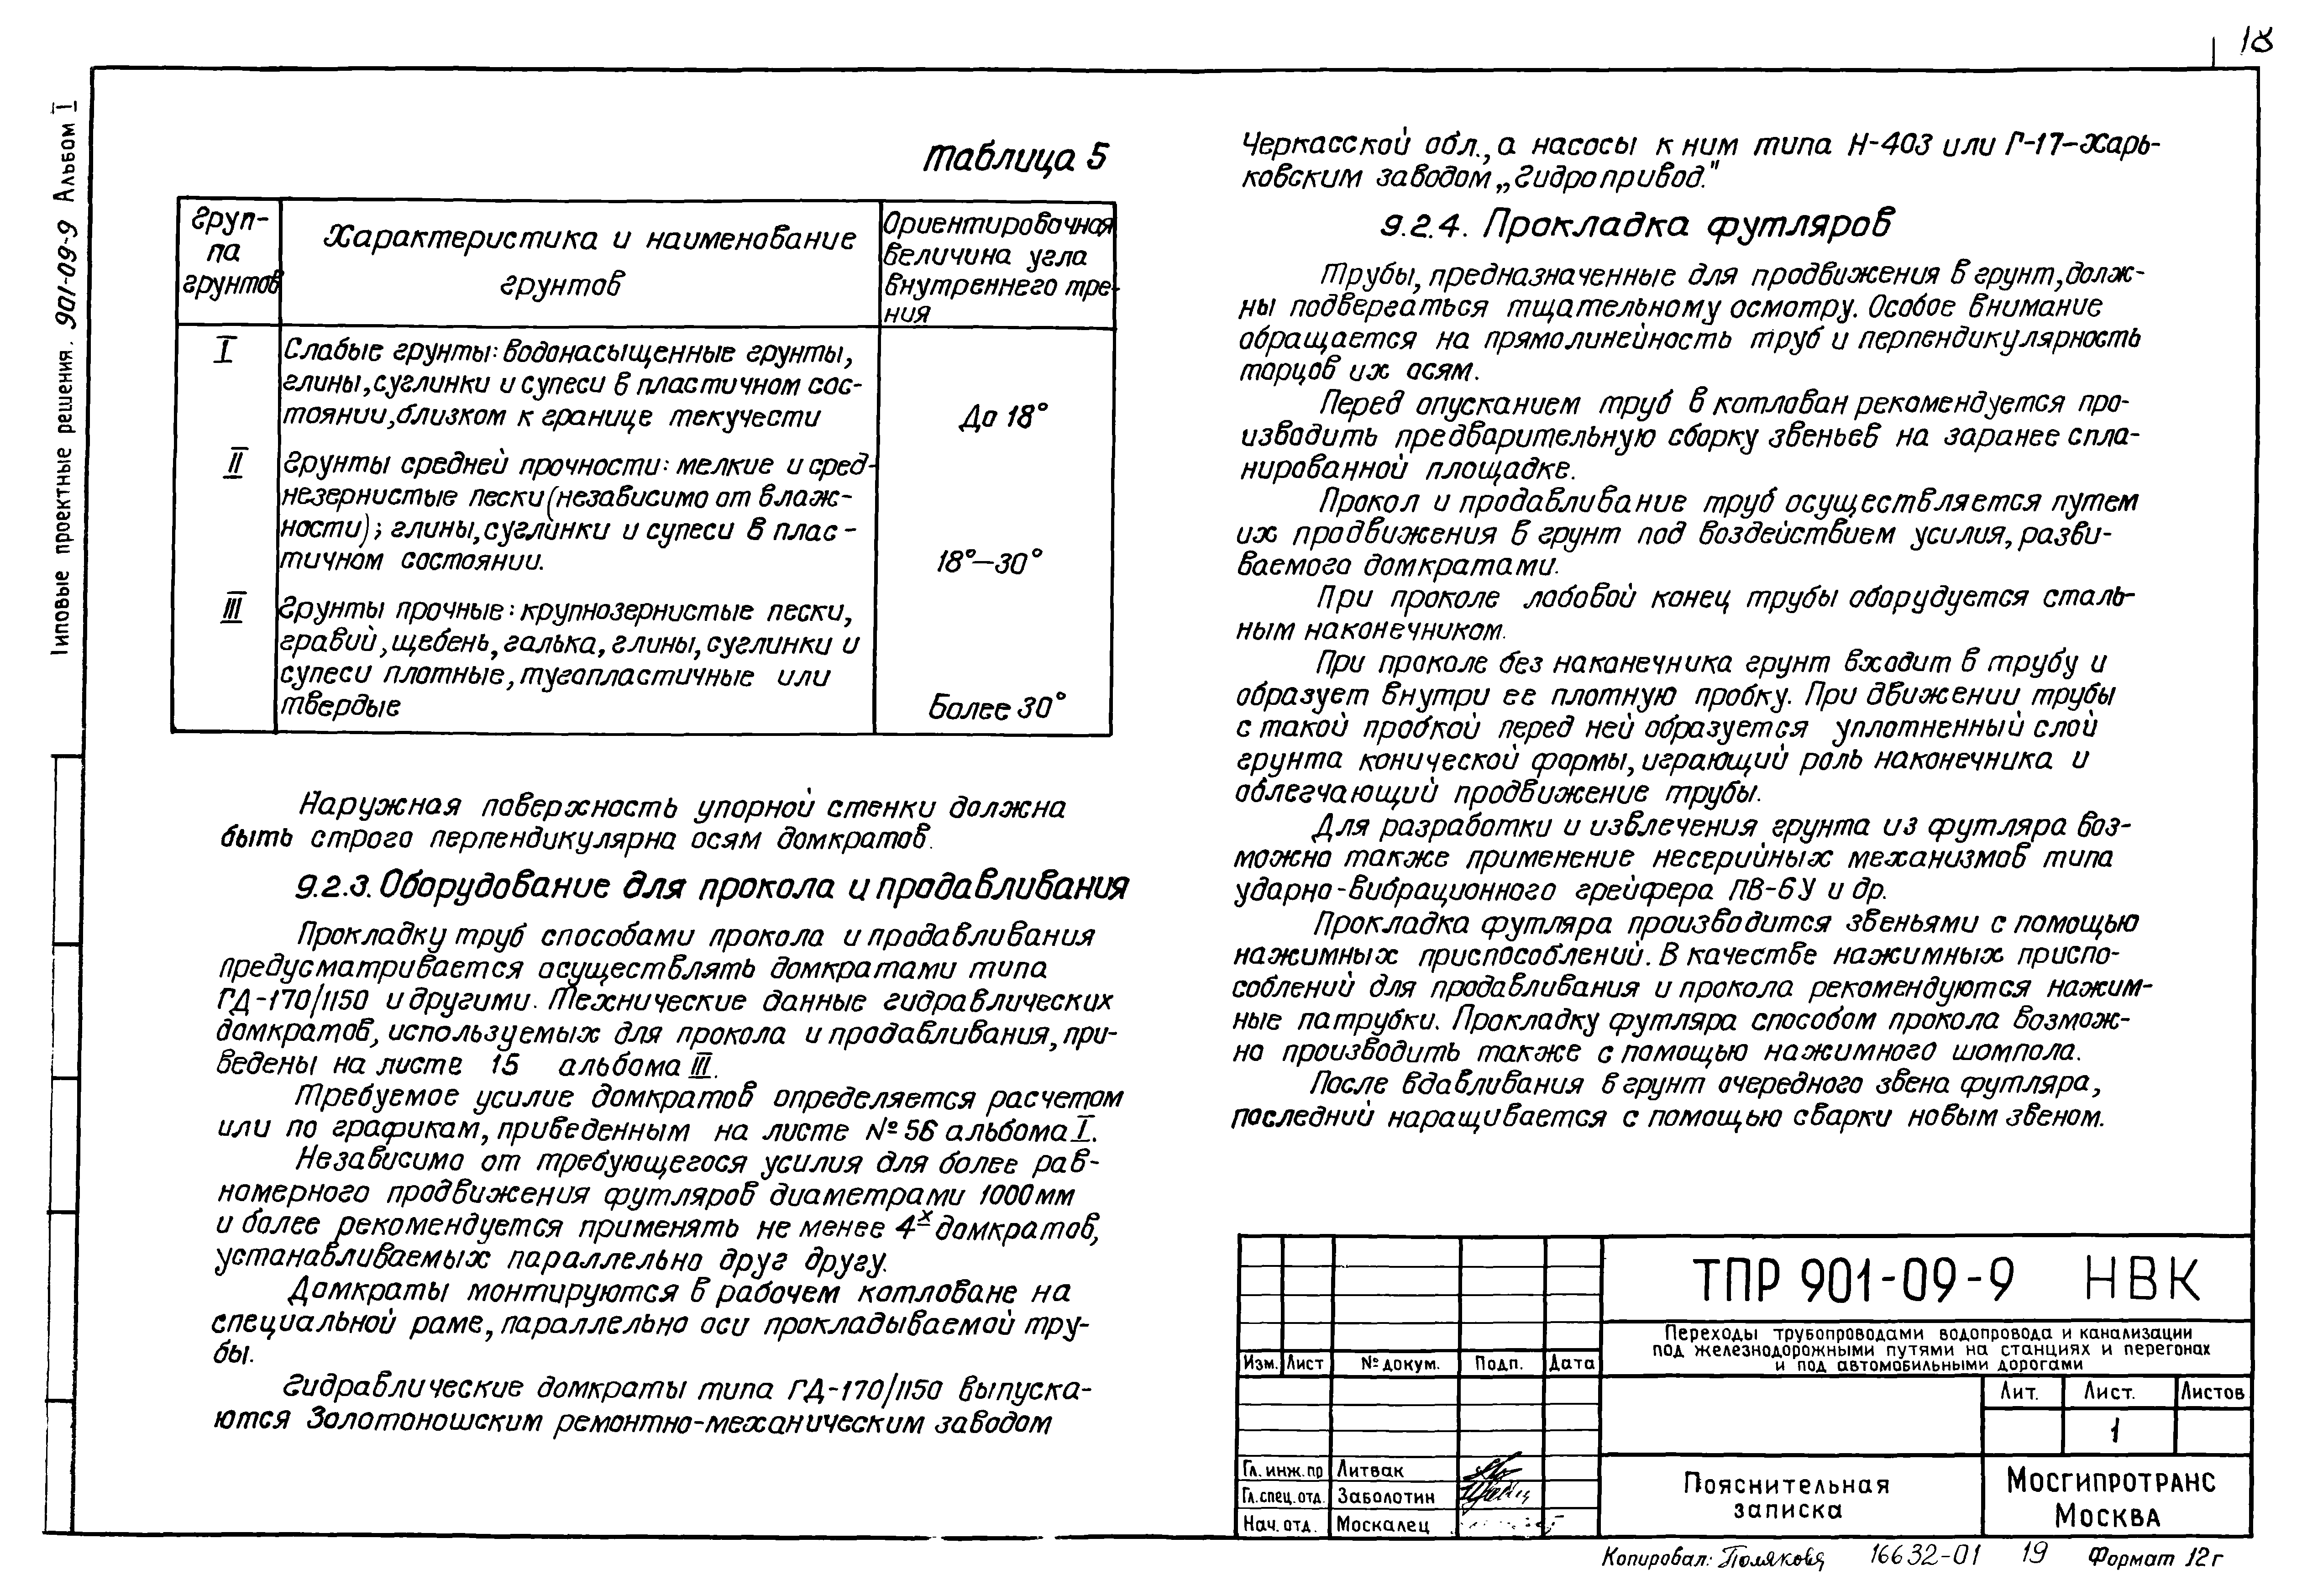 18
Типовые проектные решения. 901-09-9 Альбом I
Таблица 5
Груп-
па
грунтов
Характеристика и наименование
грунтов
Ориентировочная
величина угла
внутреннего тре-
ния
I
Слабые грунты: водонасыщенные грунты,
глины, суглинки и супеси в пластичном сос-
тоянии, близком к границе текучести
До 18°
II
Грунты средней прочности: мелкие и сред-
незернистые пески (независимо от влаж-
ности); глины, суглинки и супеси в плас-
тичном состоянии.
18°-30°
III
Грунты прочные: крупнозернистые пески,
гравий, щебень, галька, глины, суглинки и
супеси плотные, тугопластичные или
твердые
Более 30°
Наружная поверхность упорной стенки должна
быть строго перпендикулярна осям домкратов.
9.2.3. Оборудование для прокола и продавливания
Прокладку труб способами прокола и продавливания
предусматривается осуществлять домкратами типа
ГД-170/1150 и другими. Технические данные гидравлических
домкратов, используемых для прокола и продавливания, при-
ведены на листе 15 альбома III.
Требуемое усилие домкратов определяется расчетом
или по графикам, приведенным на листе №56 альбома I.
Независимо от требующегося усилия для более рав-
номерного продвижения футляров диаметрами 1000мм
и более рекомендуется применять не менее 4х домкратов,
устанавливаемых параллельно друг другу.
Домкраты монтируются в рабочем котловане на
специальной раме, параллельно оси прокладываемой тру-
бы.
Гидравлические домкраты типа ГД-170/1150 выпуска-
ются Золотоношским ремонтно-механическим заводом
Черкасской обл., а насосы к ним типа Н-403 или Г-17-Харь-
ковским заводом „Гидропривод."
9.2.4. Прокладка футляров
Трубы, предназначенные для продвижения в грунт, долж-
ны подвергаться тщательному осмотру. Особое внимание
обращается на прямолинейность труб и перпендикулярность
торцов их осям.
Перед опусканием труб в котлован рекомендуется про-
изводить предварительную сборку звеньев на заранее спла-
нированной площадке.
Прокол и продавливание труб осуществляется путем
их продвижения в грунт под воздействием усилия, разви-
ваемого домкратами.
При проколе лобовой конец трубы оборудуется сталь-
ным наконечником.
При проколе без наконечника грунт входит в трубу и
образует внутри ее плотную пробку. При движении трубы
с такой пробкой перед ней образуется уплотненный слой
грунта конической формы, играющий роль наконечника и
облегчающий продвижение трубы.
Для разработки и извлечения грунта из футляра воз-
можно также применение несерийных механизмов типа
ударно-вибрационного грейфера ПВ-6У и др.
Прокладка футляра производится звеньями с помощью
нажимных приспособлений. В качестве нажимных приспо-
соблений для продавливания и прокола рекомендуются нажим-
ные патрубки. Прокладку футляра способом прокола возмож-
но производить также с помощью нажимного шомпола.
После вдавливания в грунт очередного звена футляра,
последний наращивается с помощью сварки новым звеном.
ТПР 901-09-9 НВК
Переходы трубопроводами водопровода и канализации
под железнодорожными путями на станциях и перегонах
и под автомобильными дорогами
Изм. Лист № докум. Подп. Дата
Лит. Лист. Листов
1
Гл. инж. пр Литвак
Гл. спец. отд. Заболотин
Нач. отд. Москалец
Пояснительная
записка
Мосгипротранс
Москва
Копировал: Полякова 16632-01 19 Формат 12г